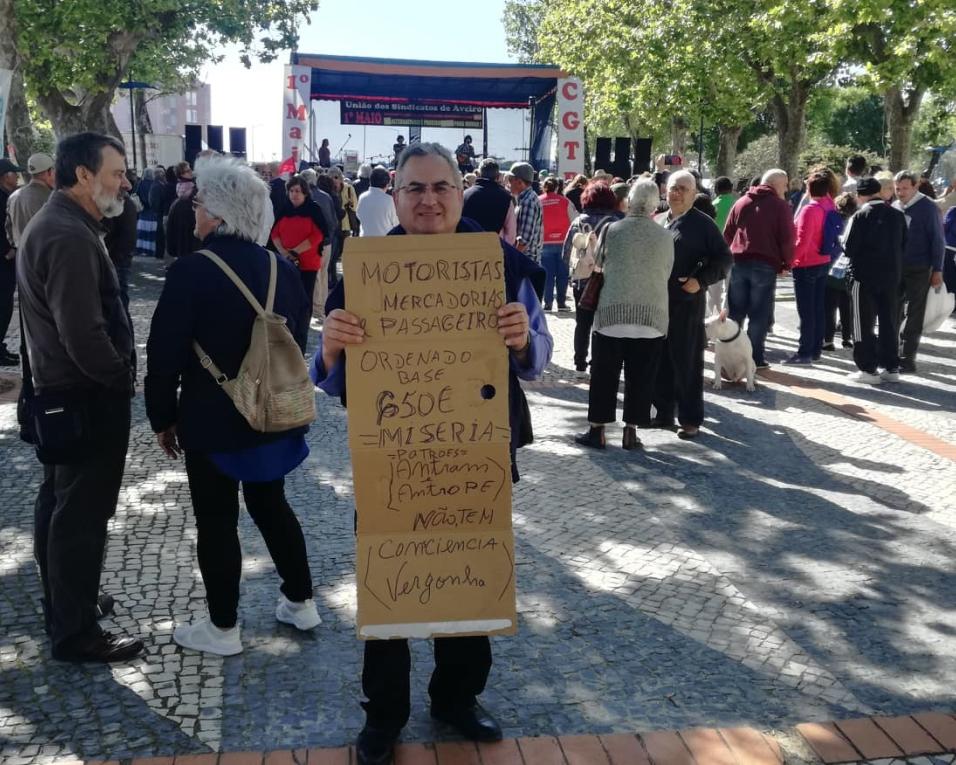 1º
Mai
União dos Sindicatos de Aveiro
1º MAIO
CGT
MOTORISTAS
MERCADORIAS
PASSAGEIRO
ORDENADO
BASE
650€
=MISERIA=
=PATROES=
(Antram
Antrope)
NÃO, TEM
(CONCIENCIA
Vergonha)